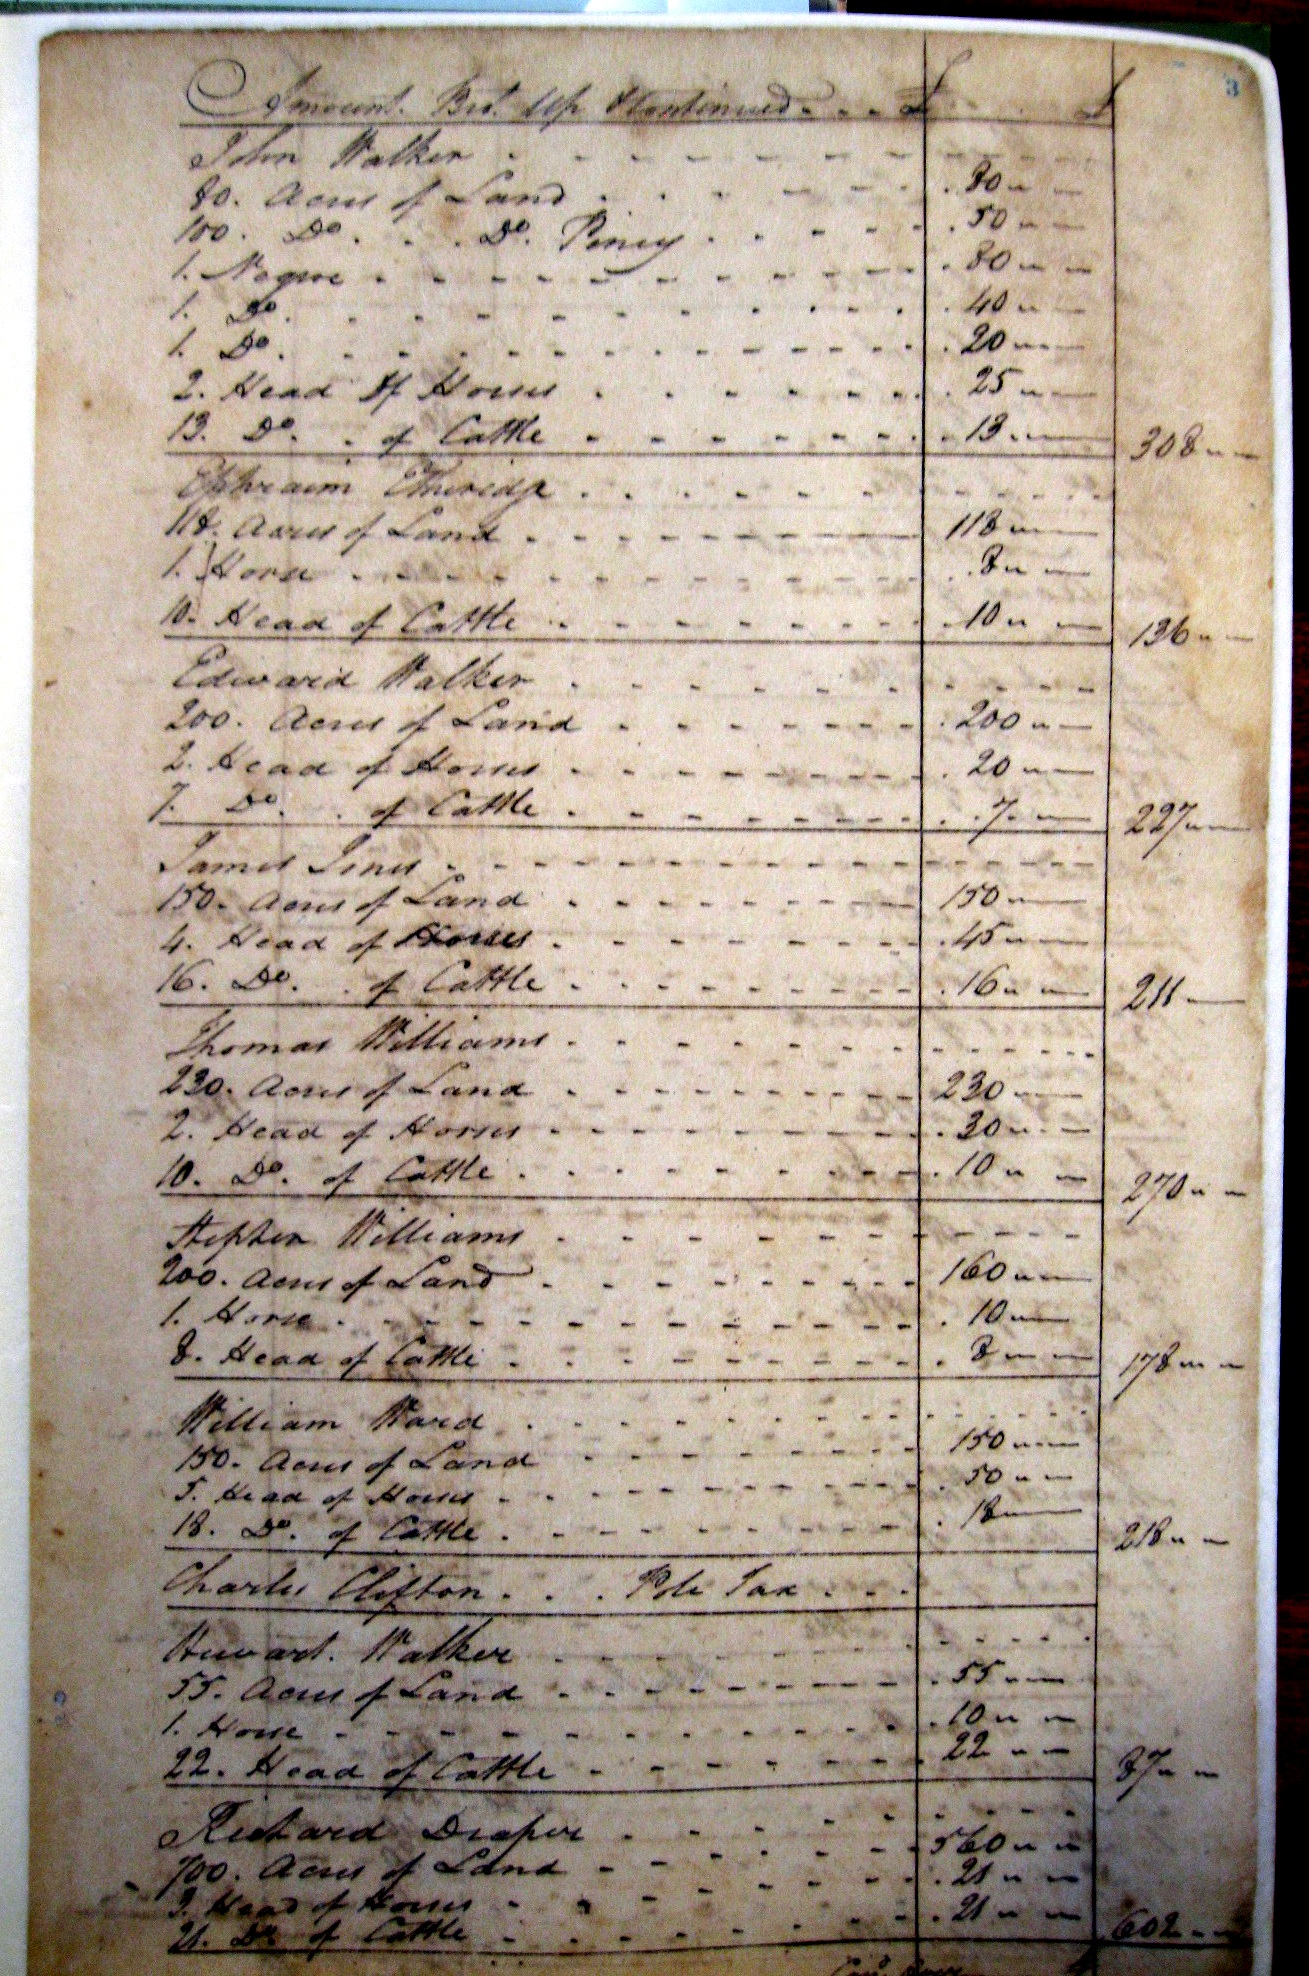 3
Amount. Brt. Up & Continued . . . £ £
John Walker
80. Acres of Land 80
100. Do. Do. Piney 50
1. Negroe 80
1. Do. 40
1. Do. 20
2. Head Of Horses 25
13. Do. of Cattle 13 308
Ephraim Etheridge
118. Acres of Land 118
1. Horse 8
10. Head of Cattle 10 136
Edward Walker
200. Acres of Land 200
2. Head of Horses 20
7. Do. of Cattle 7 227
James Jones
150. Acres of Land 150
4. Head of Horses 45
16. Do. of Cattle 16 211
Thomas Williams
230. Acres of Land 230
2. Head of Horses 30
10. Do. of Cattle 10 270
Stephen Williams
200. Acres of Land 160
1. Horse 10
8. Head of Cattle 8 178
William Ward
150. Acres of Land 150
5. Head of Horses 50
18. Do. of Cattle 18 218
Charles Clifton . . . Pole Tax . . .
Walker
55. Acres of Land 55
1. Horse 10
22. Head of Cattle 22 87
Richard Draper
700. Acres of Land 560
3. Head of Horses 21
21. Do. of Cattle 21 602